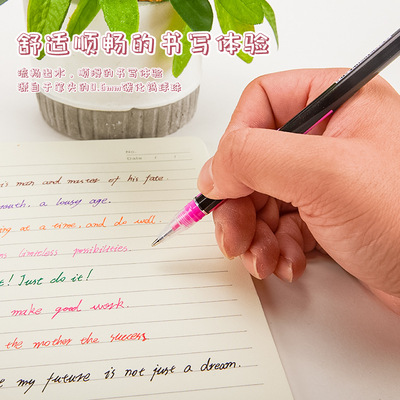 舒适顺畅的书写体验
流畅出水，顺滑的书写体验
源自于笔头的0.6mm碳化钨球珠
No.
Date
is man and master of his fate.
youth, a lousy age.
thing at a time, and do well.
limitless possibilities.
it! Just do it!
make good work.
the mother the success.
my future is not just a dream.